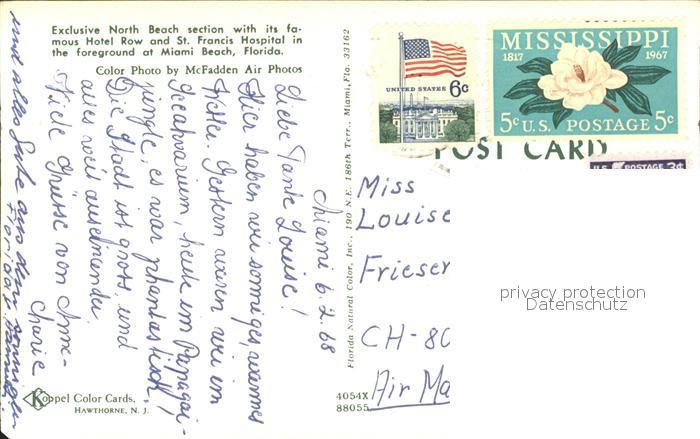 Exclusive North Beach section with its fa-
mous Hotel Row and St. Francis Hospital in
the foreground at Miami Beach, Florida.
Color Photo by McFadden Air Photos
UNITED STATES 6c
MISSISSIPPI
1817 1967
5c U.S. POSTAGE 5c
U.S. POSTAGE 3c
POST CARD
Miami 6.2.68
Liebe Tante
Louise!
Hier haben wir sonniges, warmes
Wetter. Gestern waren wir im
Seaquarium, heute im Papagai-
jungle, es war phantastisch!
Die Stadt ist gross, und
alles weit auseinander.
Viele Grüsse von
Charie
und alles Gute aus dem sonnigen
Florida
Miss
Louise
Frieser
CH-80
Air Ma
privacy protection
Datenschutz
Florida Natural Color, Inc., 190 N.E. 186th Terr., Miami, Fla. 33162
Koppel Color Cards,
HAWTHORNE, N. J.
4054X
88055